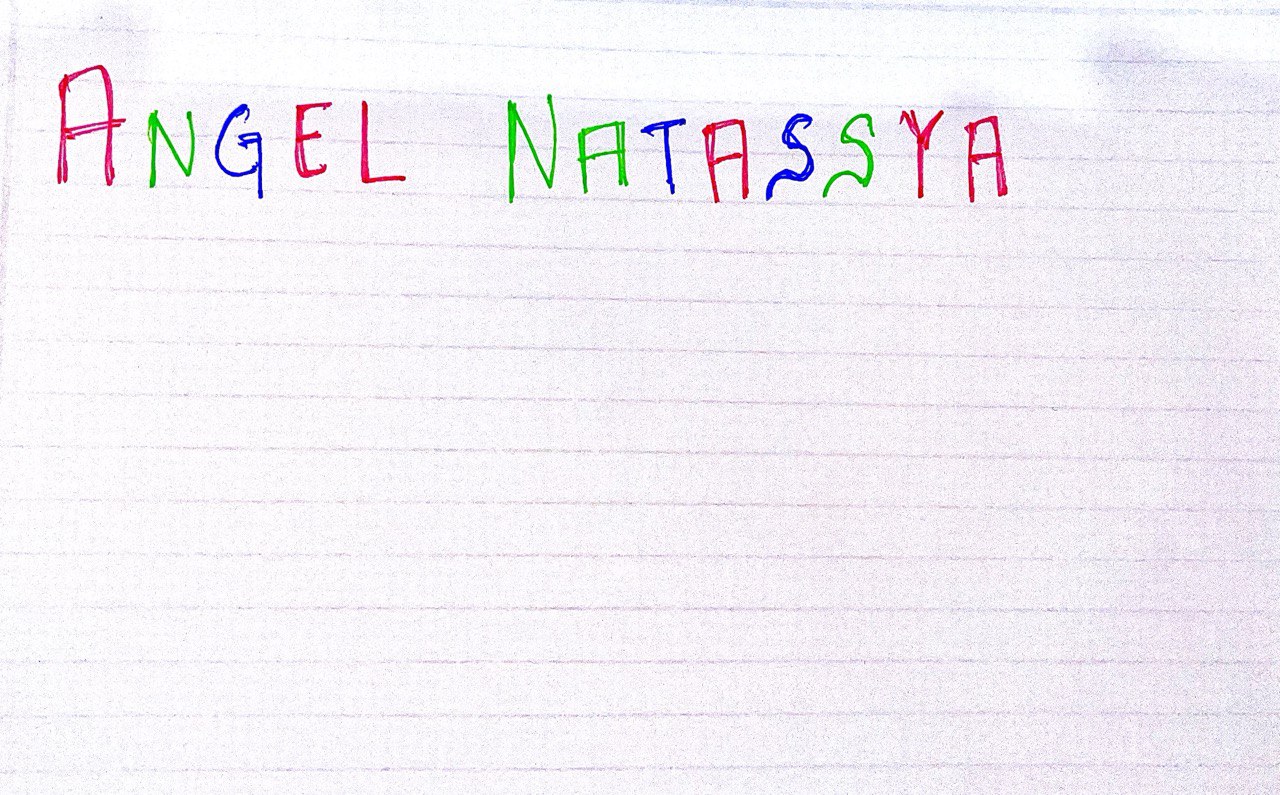 ANGEL NATASSYA